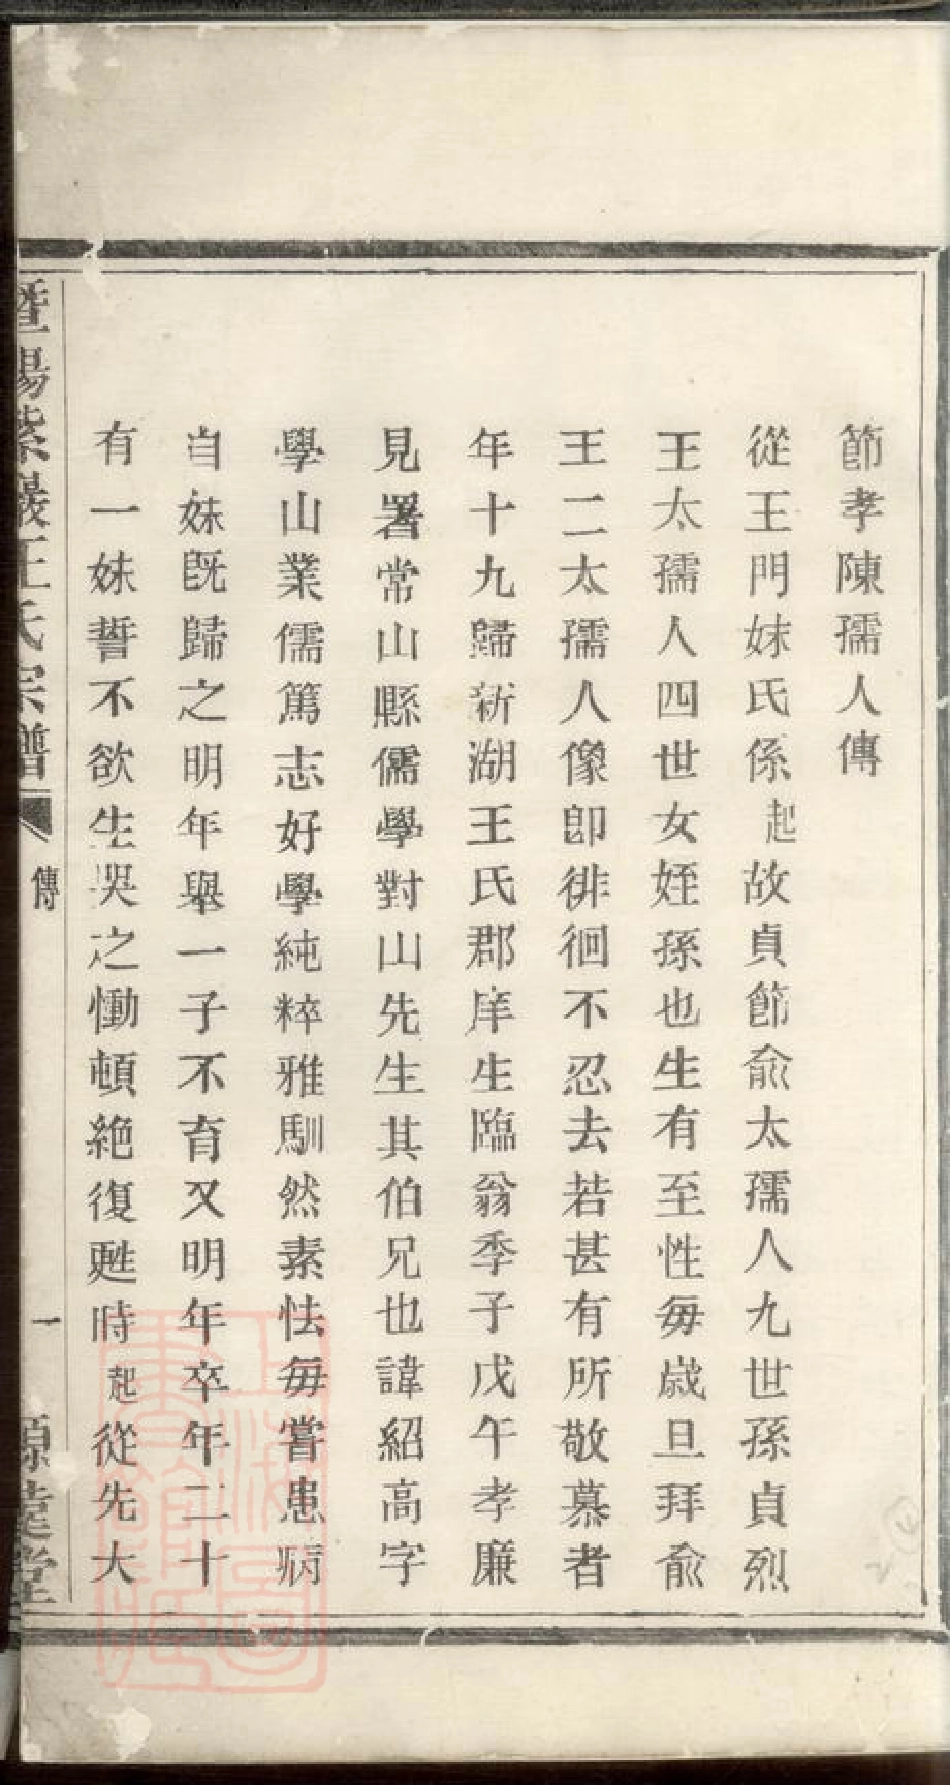 節孝陳孺人傳
從王門妹氏係起故貞節俞太孺人九世孫貞烈
王太孺人四世女姪孫也生有至性每歲旦拜俞
王二太孺人像卽徘徊不忍去若甚有所敬慕者
年十九歸新湖王氏郡庠生臨翁季子戊午孝廉
見署常山縣儒學對山先生其伯兄也諱紹高字
學山業儒篤志好學純粹雅馴然素怯每嘗患病
自妹旣歸之明年舉一子不育又明年卒年二十
有一妹誓不欲生哭之慟頓絶復甦時起從先大
暨陽紫巖王氏宗譜
傳
一
上海圖書館藏